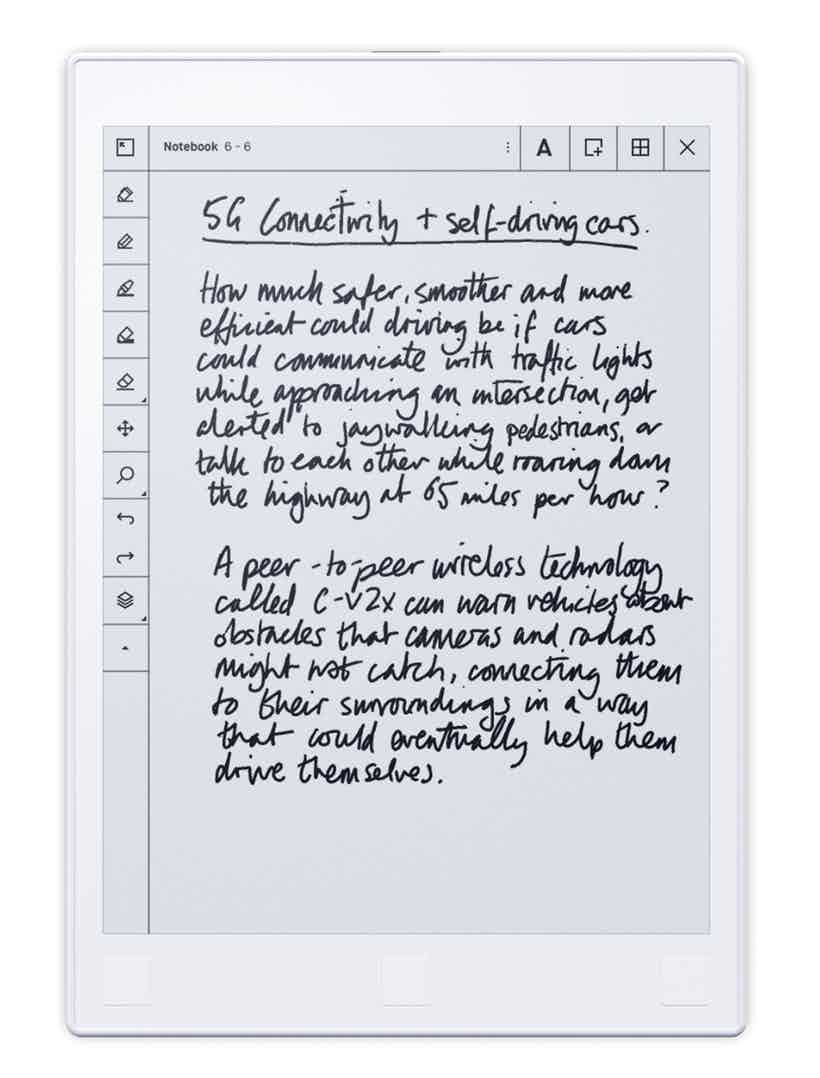 Notebook 6 - 6
A
5G Connectivity + self-driving cars.
How much safer, smoother and more
efficient could driving be if cars
could communicate with traffic lights
while approaching an intersection, get
alerted to jaywalking pedestrians, or
talk to each other while roaring down
the highway at 65 miles per hour?
A peer-to-peer wireless technology
called C-V2X can warn vehicles about
obstacles that cameras and radars
might not catch, connecting them
to their surroundings in a way
that could eventually help them
drive themselves.